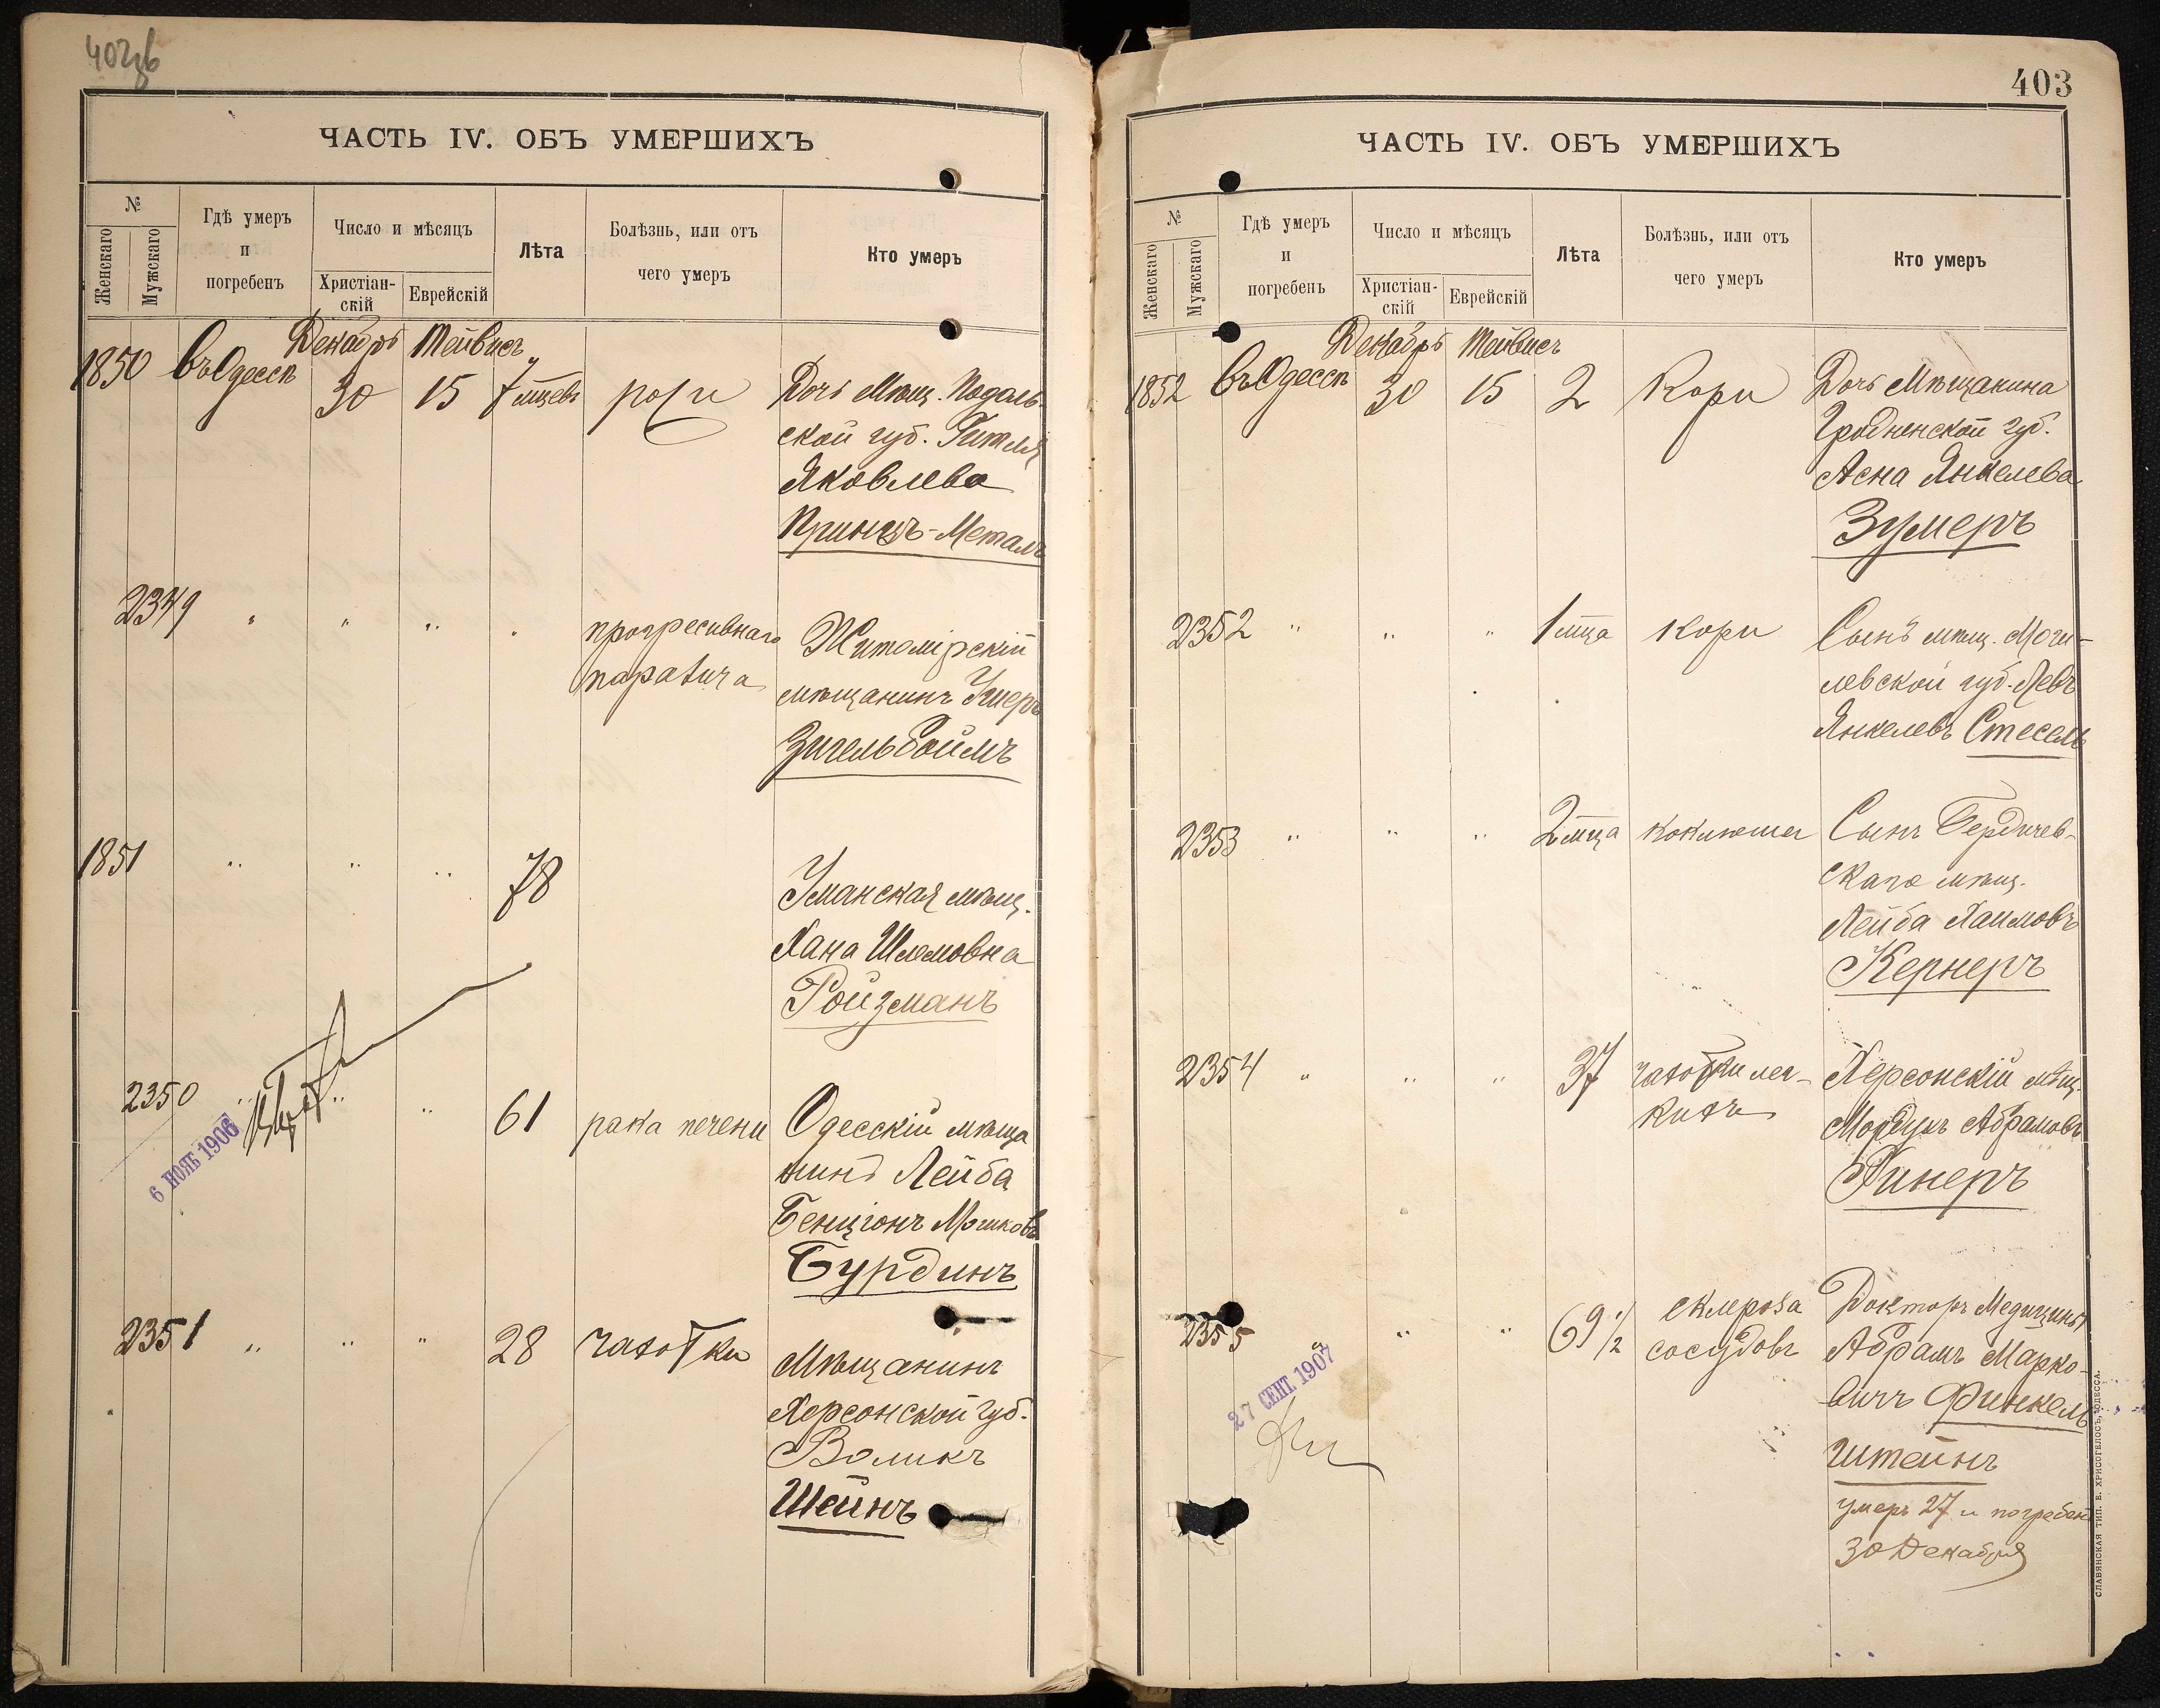 402об
ЧАСТЬ IV. ОБЪ УМЕРШИХЪ
№
Женскаго
Мужскаго
Гдѣ умеръ
и
погребенъ
Число и мѣсяцъ
Христіан-
скій
Еврейскій
Лѣта
Болѣзнь, или отъ
чего умеръ
Кто умеръ
Декабрь Тейвисъ
1850 въ Одессѣ 30 15 7 мцевъ рожи Дочь Мѣщ. Подоль-
ской губ. Гитля
Яковлева
Принцъ-Металъ
2349 " " " " прогресивнаго Житомірскій
паралича мѣщанинъ Ушеръ
Зигельбоймъ
1851 " " " 78 Уманская мѣщ.
Хана Шлемовна
Ройзманъ
2350 " " " 61 рака печени Одесскій мѣща
нинъ Лейба
Бенціонъ Мошковъ
Бурдинъ
6 НОЯБ 1906
2351 " " " 28 чахотки Мѣщанинъ
Херсонской губ.
Воликъ
Шейнъ
403
ЧАСТЬ IV. ОБЪ УМЕРШИХЪ
№
Женскаго
Мужскаго
Гдѣ умеръ
и
погребенъ
Число и мѣсяцъ
Христіан-
скій
Еврейскій
Лѣта
Болѣзнь, или отъ
чего умеръ
Кто умеръ
Декабрь Тейвисъ
1852 въ Одессѣ 30 15 2 Кори Дочь Мѣщанина
Гродненской губ.
Асна Янкелева
Зумеръ
2352 " " " 1 мца кори Сынъ мѣщ. Моги-
левской губ. Левъ
Янкелевъ Стесель
2353 " " " 2 мца коклюша Сынъ Бердичев-
скаго мѣщ.
Лейба Хаимовъ
Кернеръ
2354 " " " 37 чахотки лег- Херсонскій мѣщ.
кихъ Мордухъ Абрамовъ
Хинеръ
2355 " " 69 1/2 склероза Докторъ Медицины
сосудовъ Абрамъ Марко-
вичъ Финкель
штейнъ
умеръ 27 и погребенъ
30 Декабря
27 СЕНТ. 1907
СЛАВЯНСКАЯ ТИП. Е. ХРИСОГЕЛОСЪ, ОДЕССА.